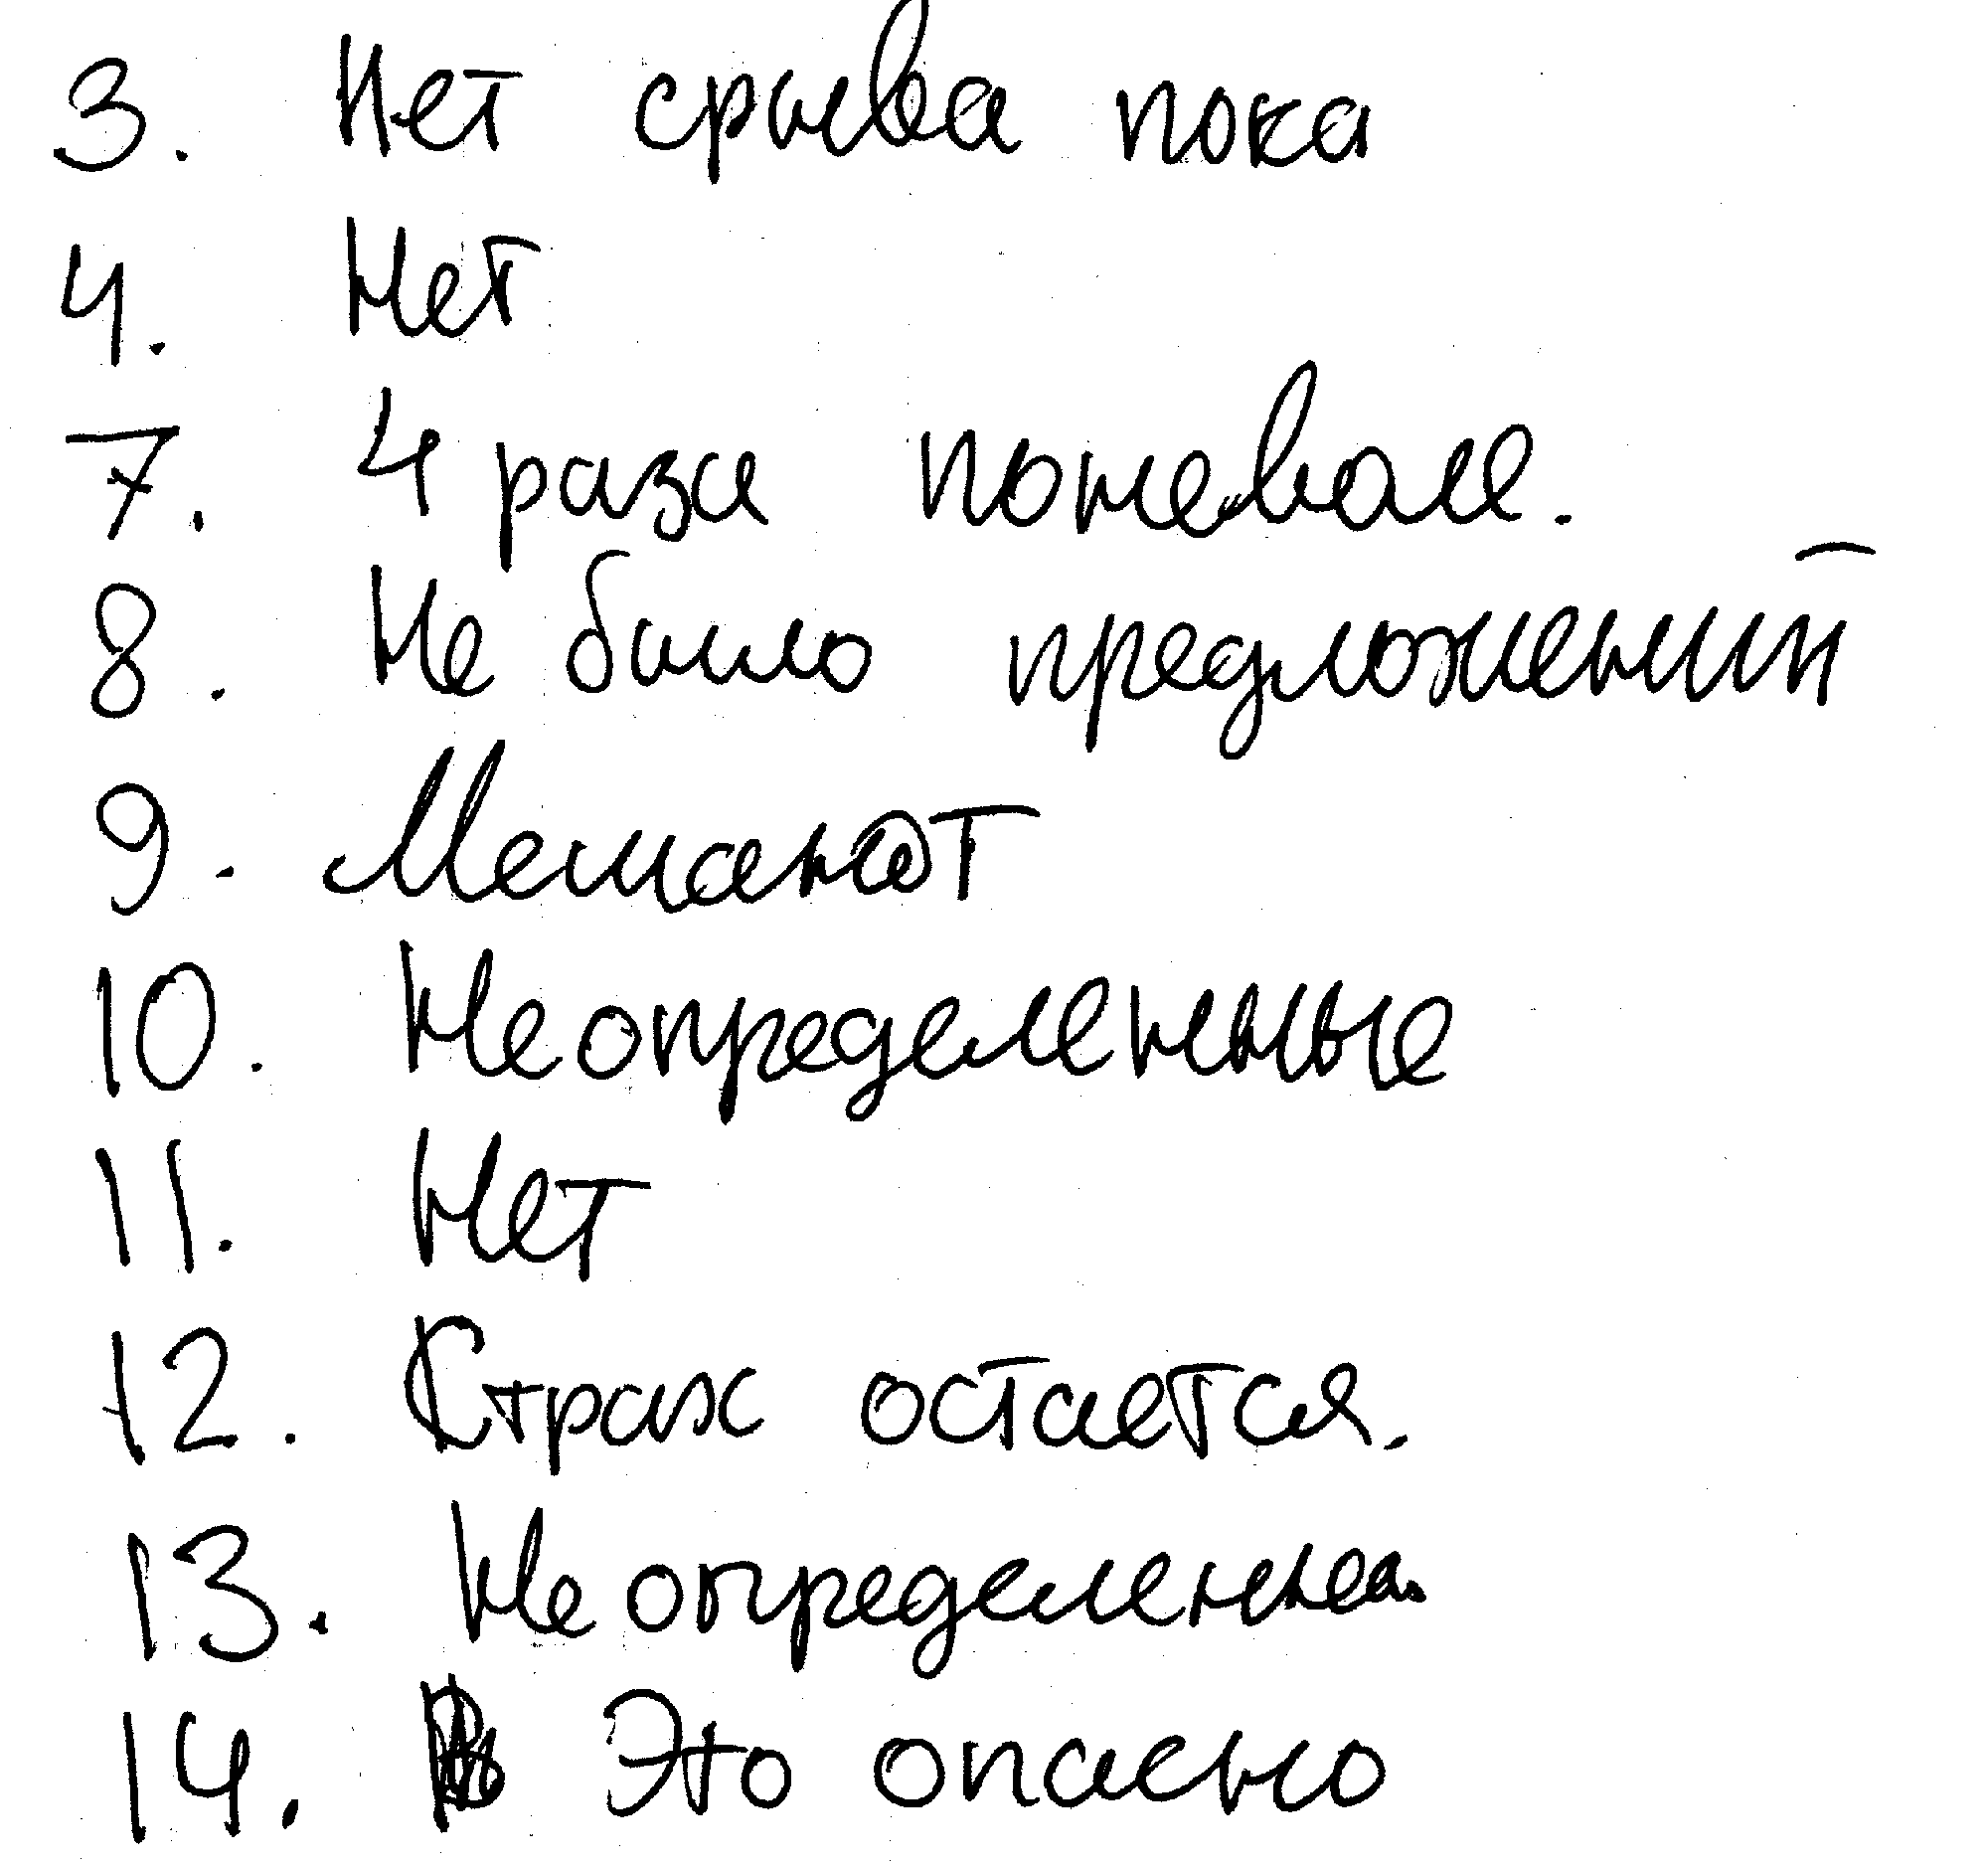 3. Нет срыва пока
4. Нет
7. 4 раза поневоле.
8. Не было предложений
9. Мешают
10. Неопределенные
11. Нет
12. Страх остается.
13. Неопределенна.
14. Это опасно